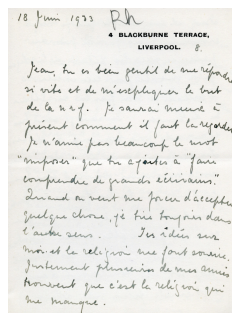 18 Juin 1933 Rh
4 BLACKBURNE TERRACE,
LIVERPOOL. 8.
Jean, tu es bien gentil de me répondre
si vite et de m'expliquer le but
de la n r f. Je saurai mieux à
présent comment il faut la regarder.
Je n'aime pas beaucoup le mot
"imposer" que tu ajoutes à "faire
comprendre de grands écrivains."
Quand on veut me forcer d'accepter
quelque chose, je tire toujours dans
l'autre sens. Tes idées sur
moi et la religion me font sourire.
Justement plusieurs de mes amis
trouvent que c'est la religion qui
me manque.